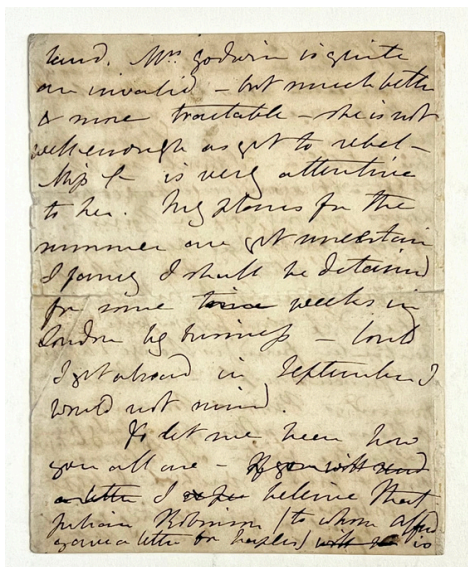 kind. Mrs Godwin is quite
an invalid – but much better
& more tractable – she is not
well enough as yet to rebel –
Miss C is very attentive
to her. My plans for the
summer are yet uncertain
I fancy I shall be detained
for some time weeks in
London by business – could
I get abroad in September I
would not mind.
Do let me hear how
you all are – If you will send
a letter I believe that
Julian Robinson (to whom Alfred
gave a letter for Naples) will is